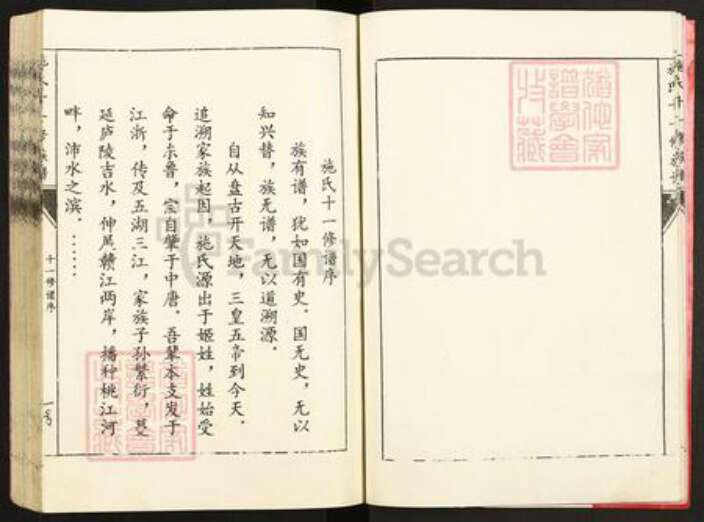 施氏十一修谱序
族有谱，犹如国有史．国无史，无以
知兴替，族无谱，无以道溯源．
自从盘古开天地，三皇五帝到今天．
追溯家族起因，施氏源出于姬姓，姓始受
命于东鲁，宗自肇于中唐．吾辈本支发于
江浙，传及五湖三江，家族子孙繁衍，蔓
延庐陵吉水，仲居赣江两岸，播种桃江河
畔，沛水之滨．……
十一修谱序
一号
施氏十一修族谱
FamilySearch